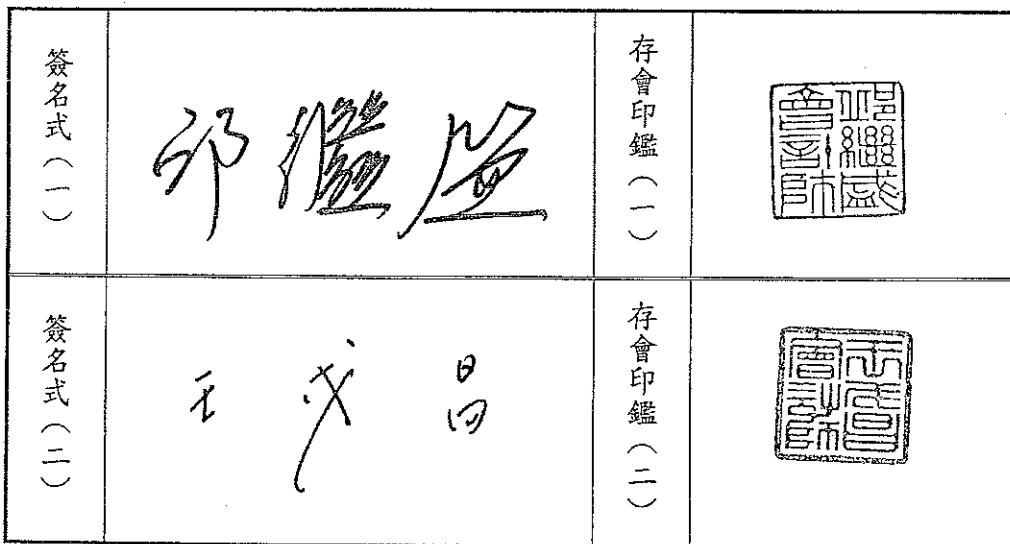 簽名式（一）
邱繼盛
存會印鑑（一）
邱繼盛
會計師
簽名式（二）
存會印鑑（二）
會計師